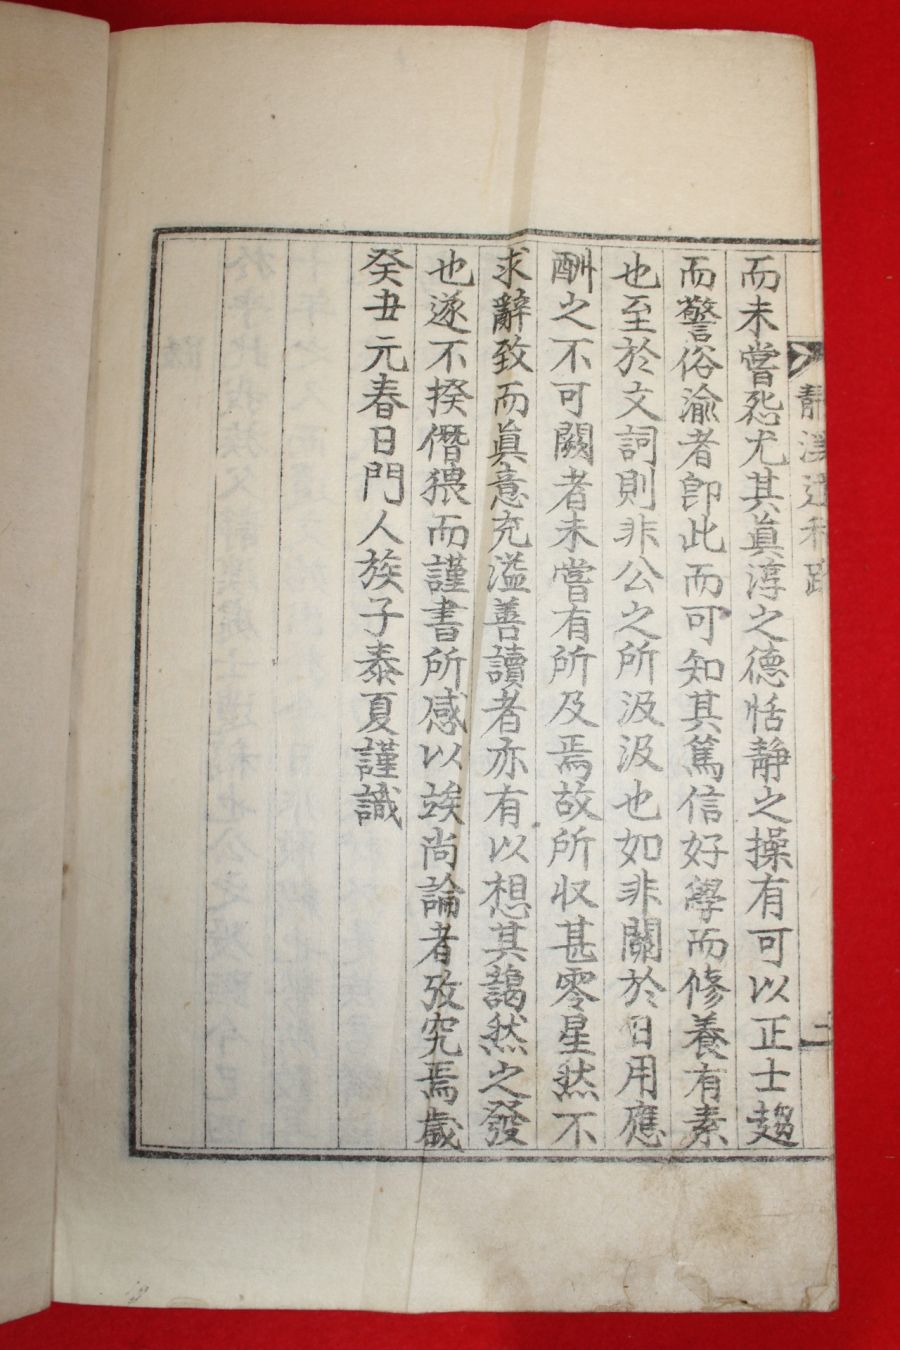 靜溪遺稿跋
二
而未嘗怨尤其眞淳之德恬靜之操有可以正士趨
而警俗渝者卽此而可知其篤信好學而修養有素
也至於文詞則非公之所汲汲也如非關於日用應
酬之不可闕者未嘗有所及焉故所収甚零星然不
求辭致而眞意充溢善讀者亦有以想其藹然之發
也遂不揆僭猥而謹書所感以竢尚論者攷究焉歲
癸丑元春日門人族子泰夏謹識